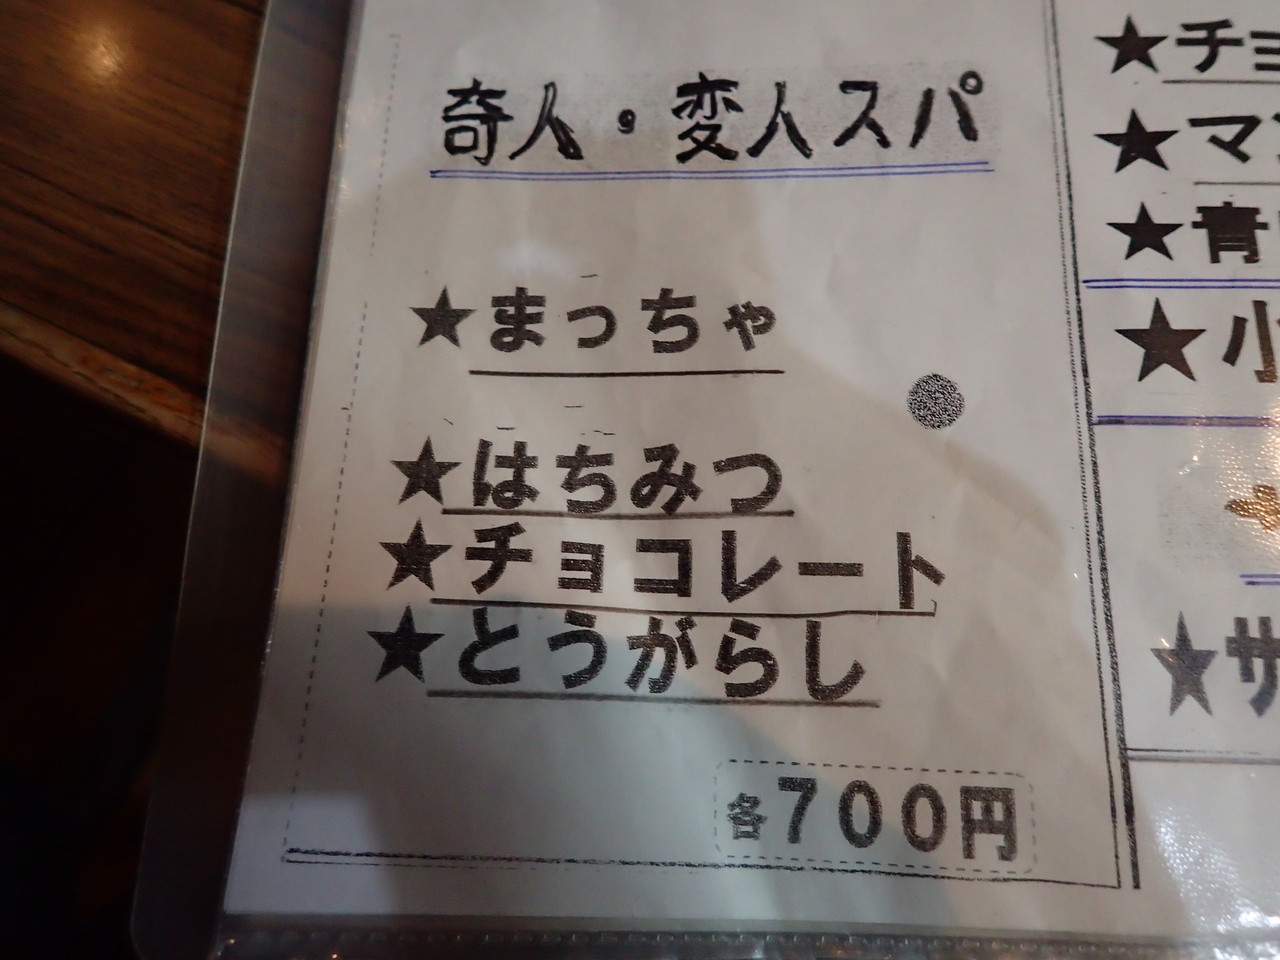 奇人・変人スパ
★まっちゃ
★はちみつ
★チョコレート
★とうがらし
各700円
★チョ
★マ
★青
★小
★サ